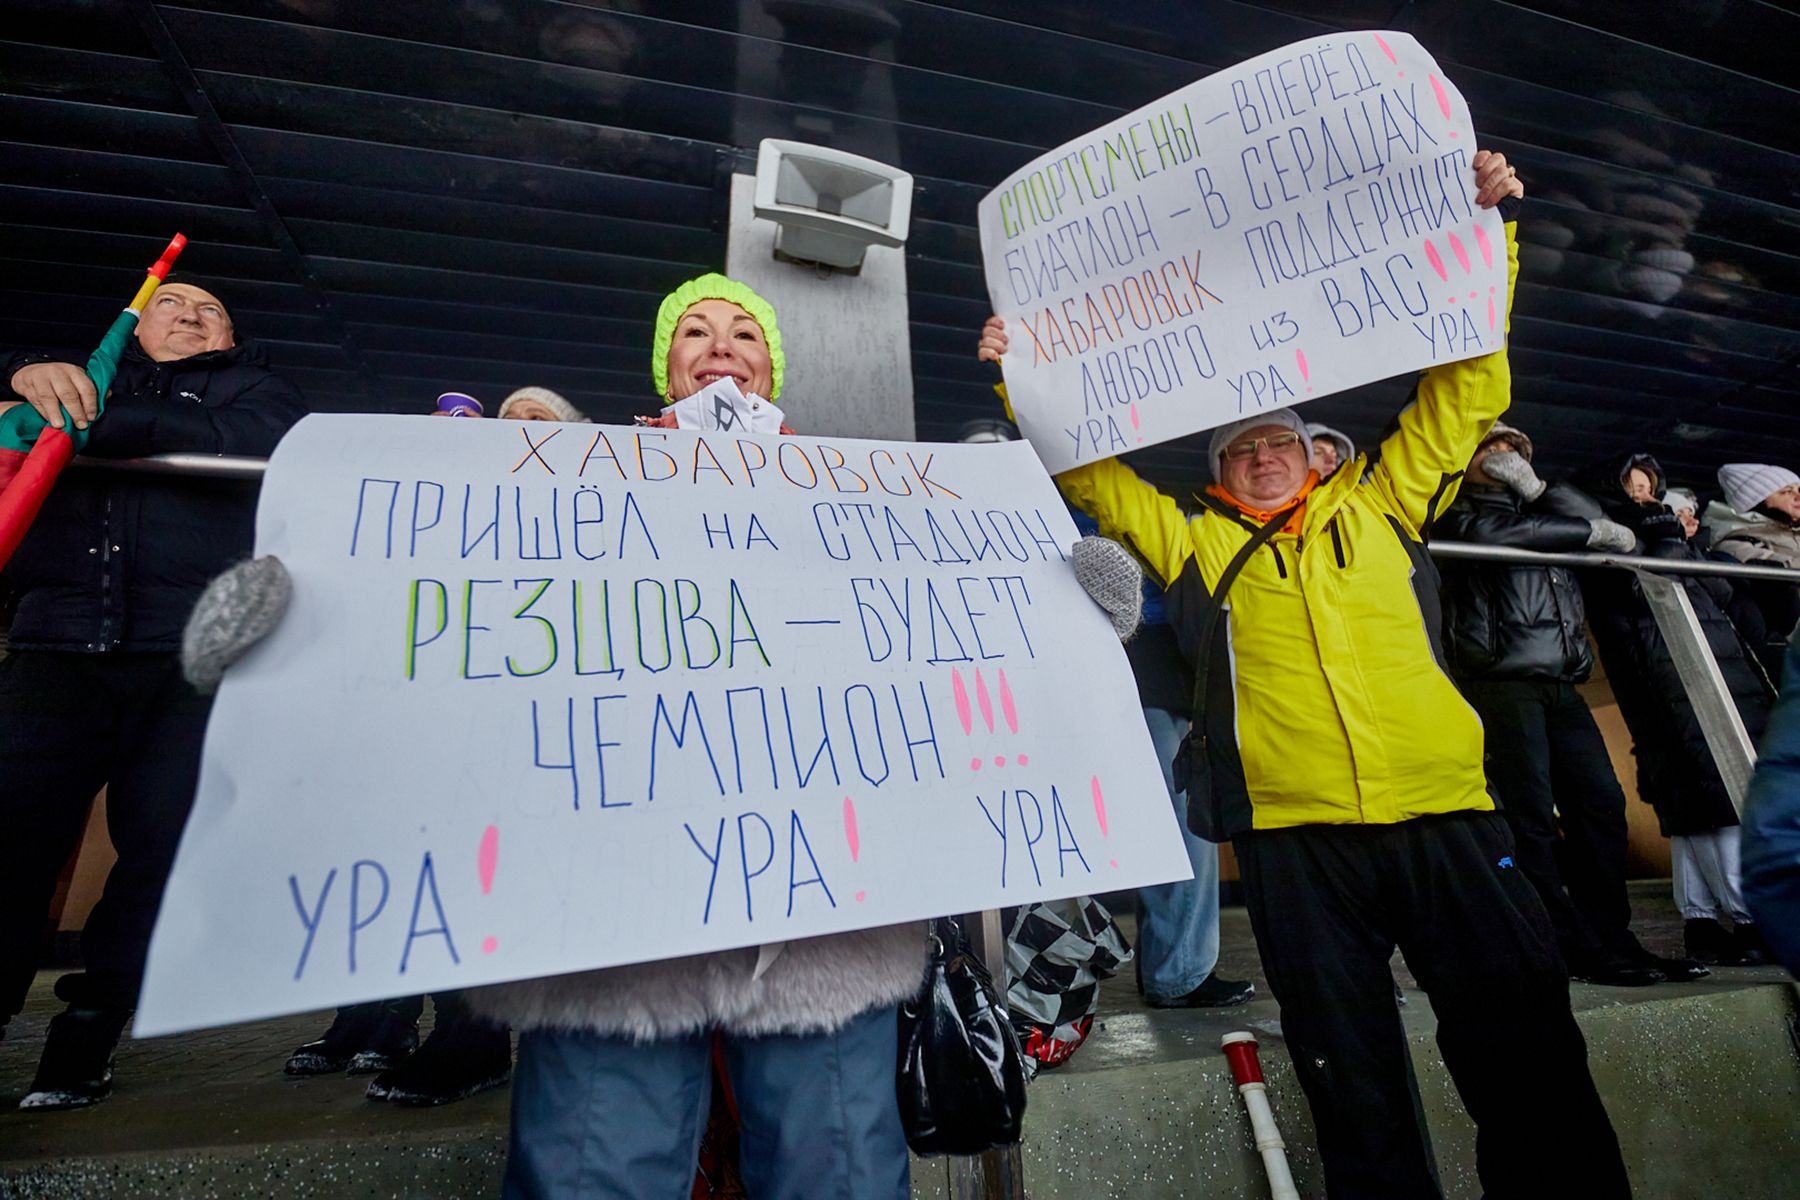 ХАБАРОВСК
ПРИШЁЛ НА СТАДИОН
РЕЗЦОВА — БУДЕТ
ЧЕМПИОН!!!
УРА! УРА! УРА!
СПОРТСМЕНЫ — ВПЕРЁД!
БИАТЛОН — В СЕРДЦАХ!
ХАБАРОВСК ПОДДЕРЖИТ
ЛЮБОГО ИЗ ВАС!!!
УРА! УРА! УРА!